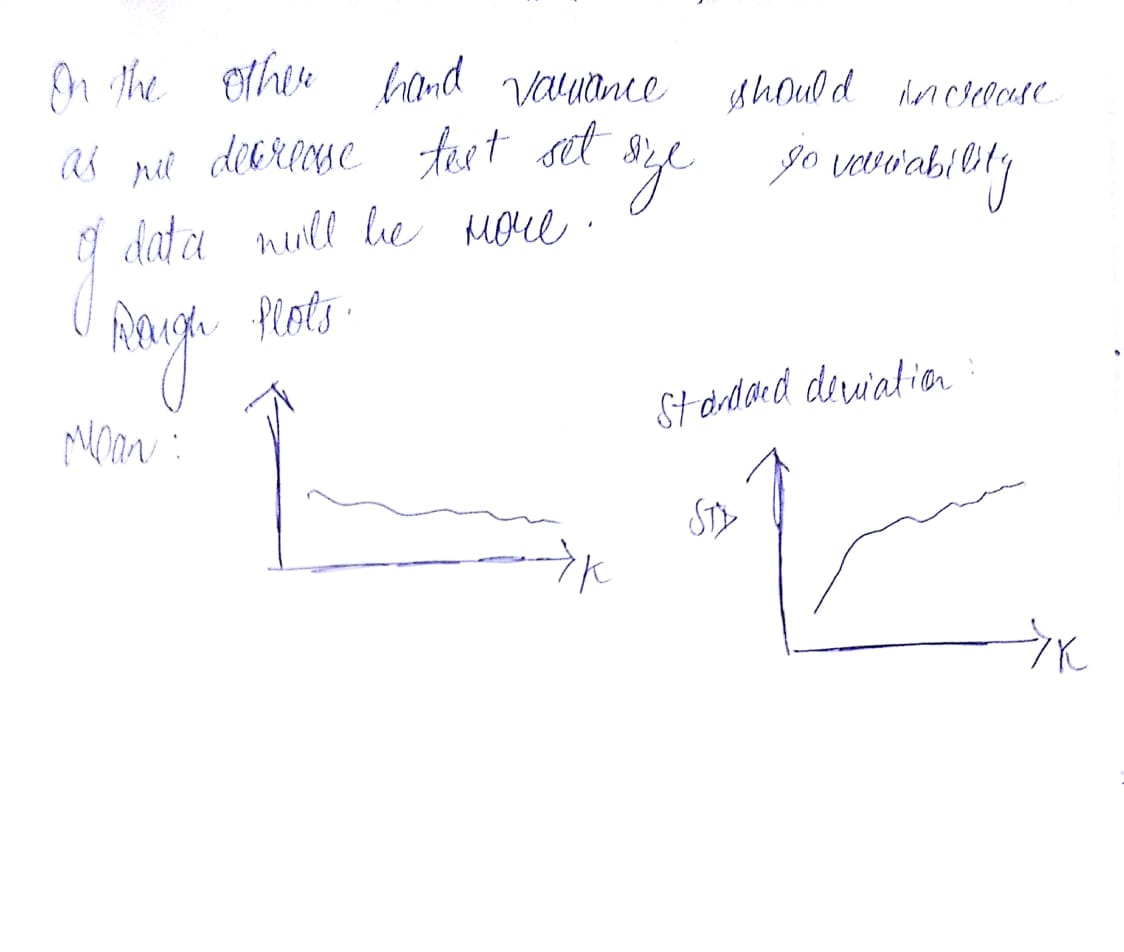 On the other hand variance should increase
as we decrease test set size so variability
of data will be more.
Rough Plots.
Mean:
K
Standard deviation:
STD
K